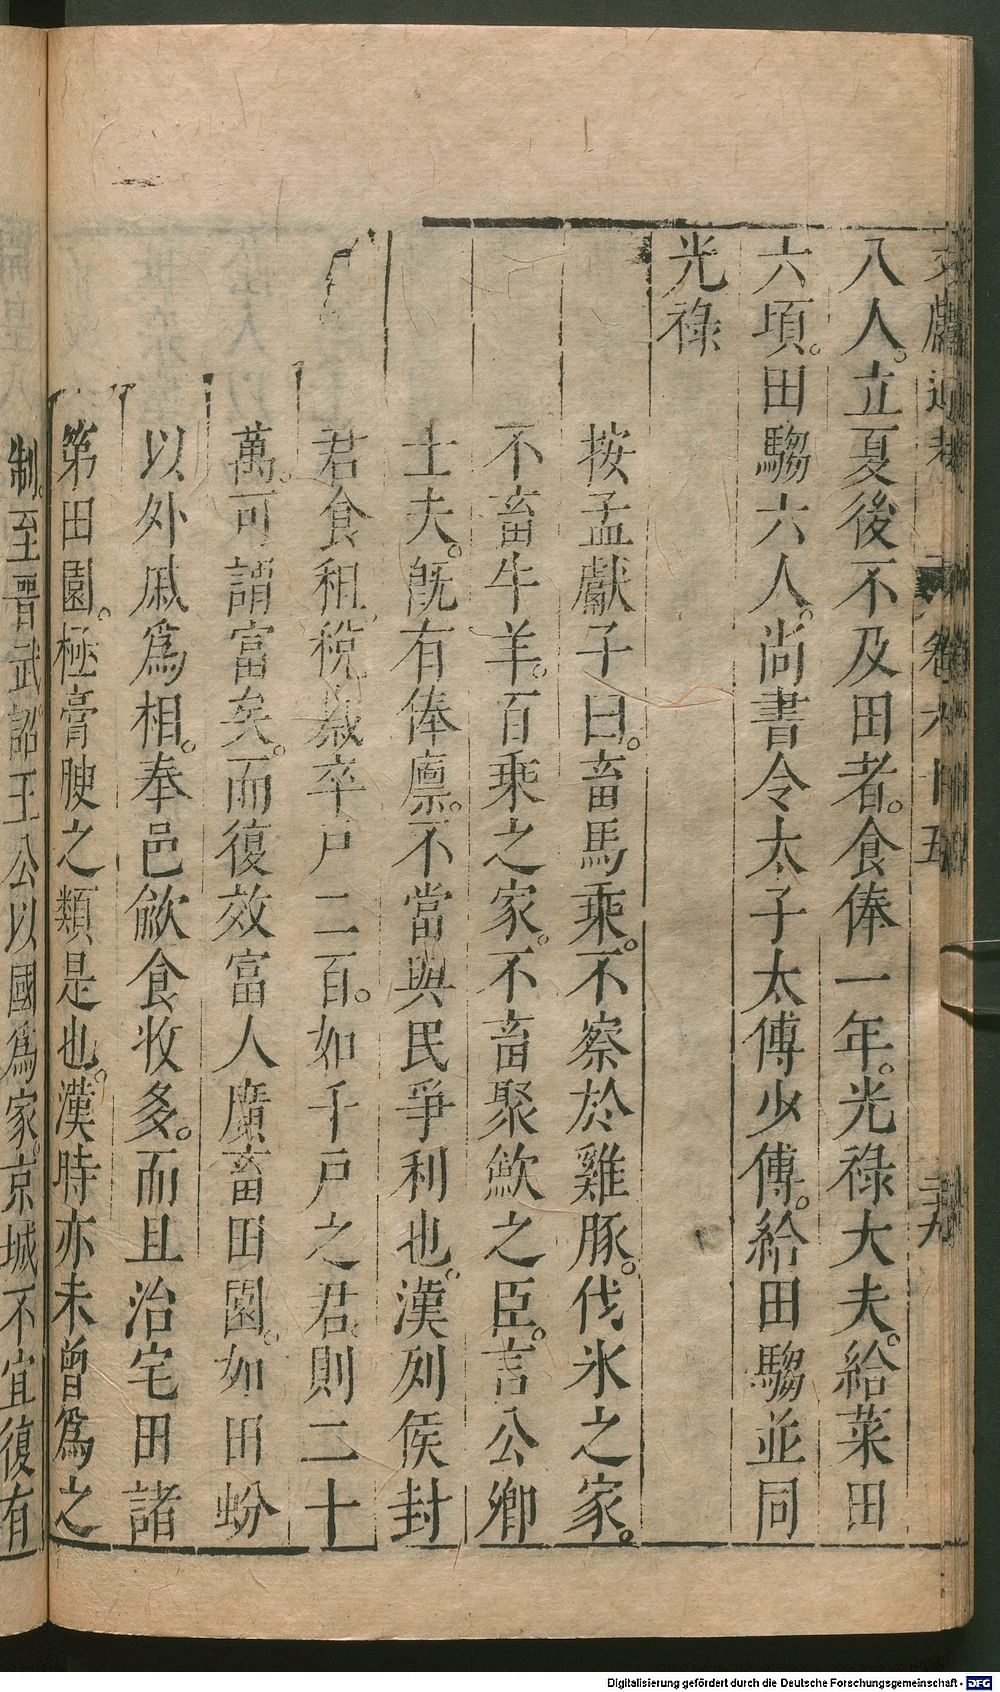 文獻通考 卷六十五 三十九
八人。立夏後不及田者。食俸一年。光祿大夫。給菜田
六頃。田騶六人。尚書令太子太傅少傅。給田騶並同
光祿
按孟獻子曰。畜馬乘。不察於雞豚。伐氷之家。
不畜牛羊。百乘之家。不畜聚歛之臣。言公卿
士夫。旣有俸廪。不當與民爭利也。漢列侯封
君食租稅。歲卒戶二百。如千戶之君。則二十
萬。可謂富矣。而復效富人廣畜田園。如田蚡
以外戚爲相。奉邑歛食收多。而且治宅田諸
第田園。極膏腴之類是也。漢時亦未曾爲之
制。至晋武詔王公以國爲家。京城不宜復有
Digitalisierung gefördert durch die Deutsche Forschungsgemeinschaft - DFG